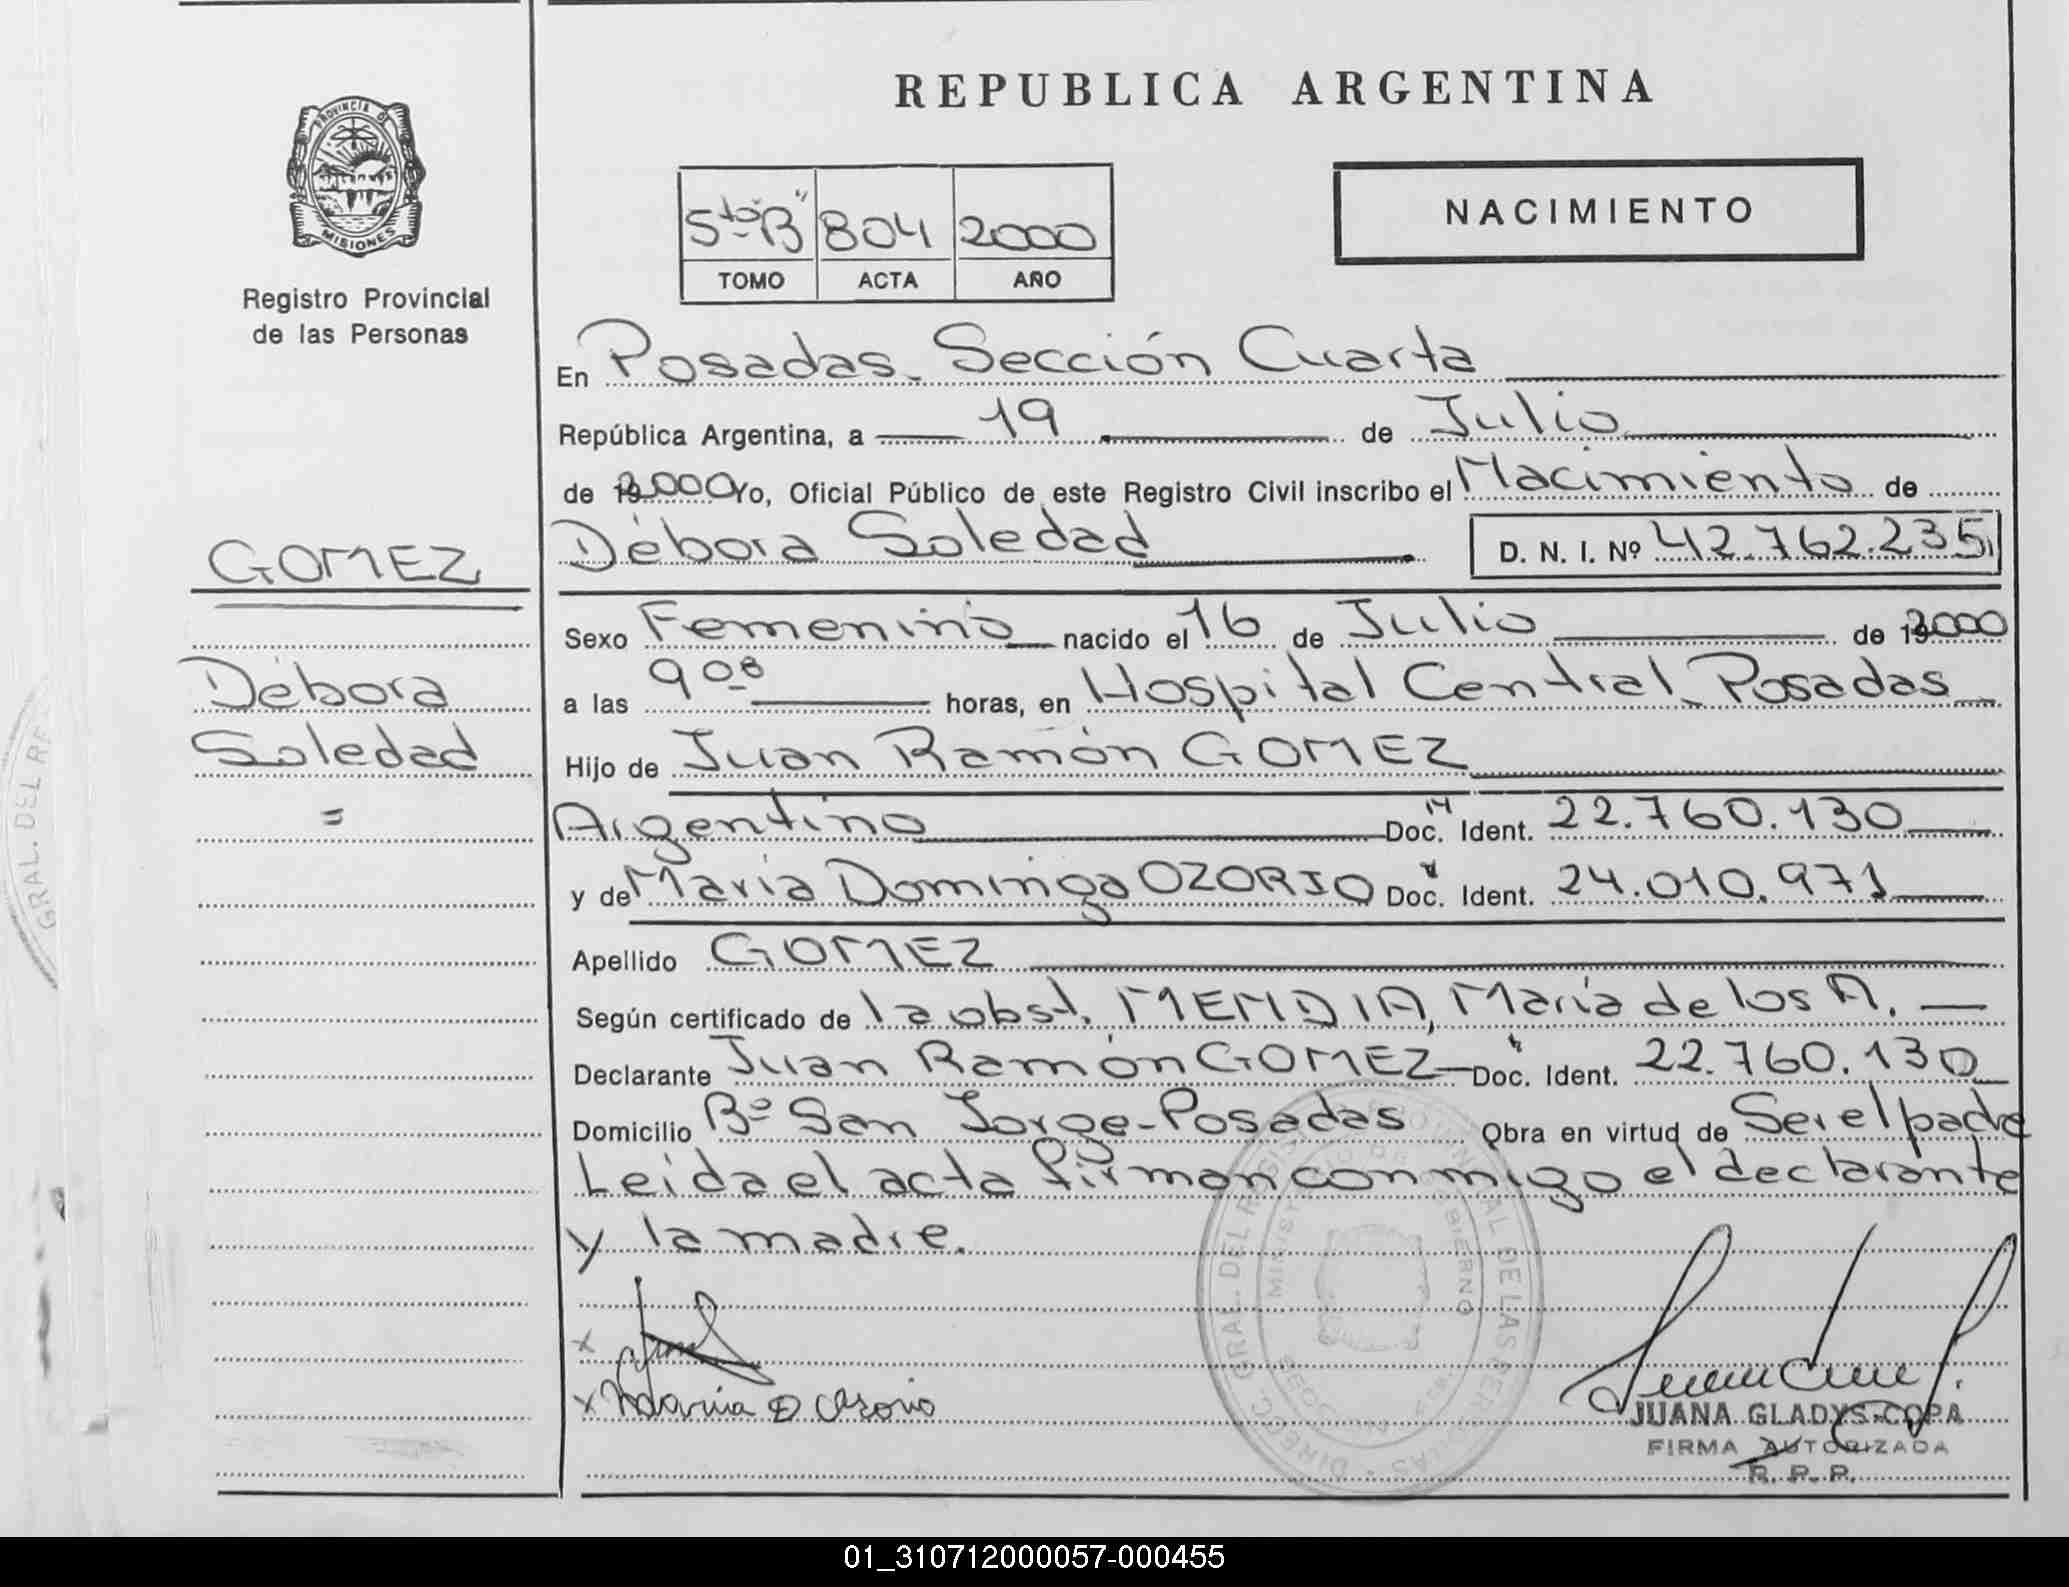 REPUBLICA ARGENTINA
PROVINCIA DE
MISIONES
Registro Provincial
de las Personas
5to "B" 804 2000
TOMO ACTA AÑO
NACIMIENTO
En Posadas. Sección Cuarta
República Argentina, a 19 de Julio
de 2000 Yo, Oficial Público de este Registro Civil inscribo el Nacimiento de
GOMEZ
Débora Soledad D. N. I. Nº 42.762.235
Sexo Femenino nacido el 16 de Julio de 2000
Débora
a las 9 08 horas, en Hospital Central. Posadas
Soledad
Hijo de Juan Ramón GOMEZ
=
Argentino Doc. Ident. 22.760.130
y de María Dominga OZORIO Doc. Ident. 24.010.971
Apellido GOMEZ
Según certificado de la obst. MENDIA, María de los A.
Declarante Juan Ramón GOMEZ Doc. Ident. 22.760.130
Domicilio Bº San Jorge - Posadas Obra en virtud de Ser el padre
Leida el acta firman conmigo el declarante
y la madre.
x
x Maria D Osorio
JUANA GLADYS COPA
FIRMA AUTORIZADA
R. P. P.
GRAL. DEL RE
DIRECC. GRAL. DEL REGISTRO PROVINCIAL DE LAS PERSONAS
MINISTERIO DE GOBIERNO
01_310712000057-000455